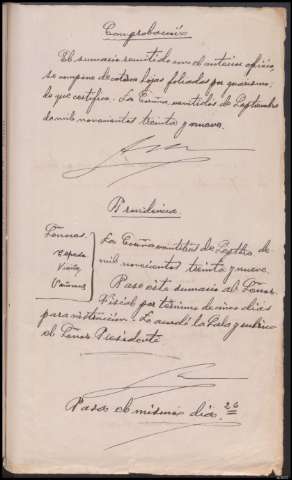 Comprobación
El sumario remitido con el anterior oficio,
se compone de catorce fojas foliadas por guarismo;
de que certifico. La Coruña veintidos de Septiembre
de mil novecientos treinta y nueve.
Providencia
Señores
Espada
Viuña
La Coruña veintitres de Septbre de
mil novecientos treinta y nueve
Pase este sumario al Señor
Fiscal por termino de cinco dias
para instrucción. Lo acordó la Sala y rubrica
el Señor Presidente
Pasa el mismo dia. 26